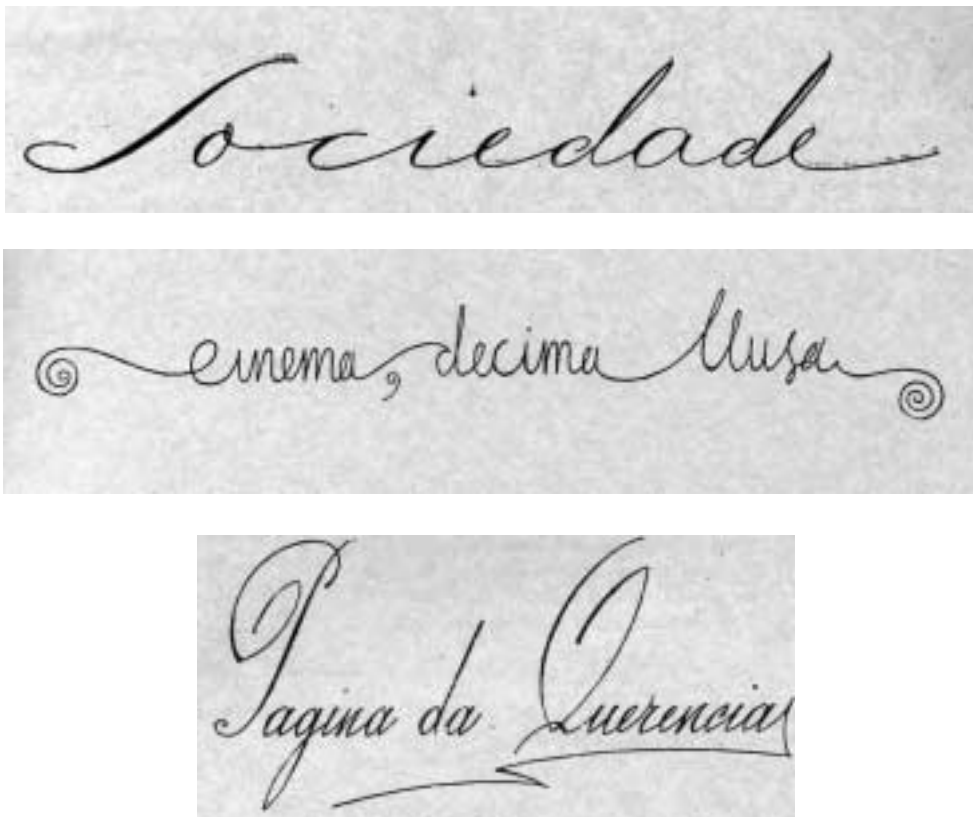 Sociedade
cinema, decima Musa
Pagina da Querencia